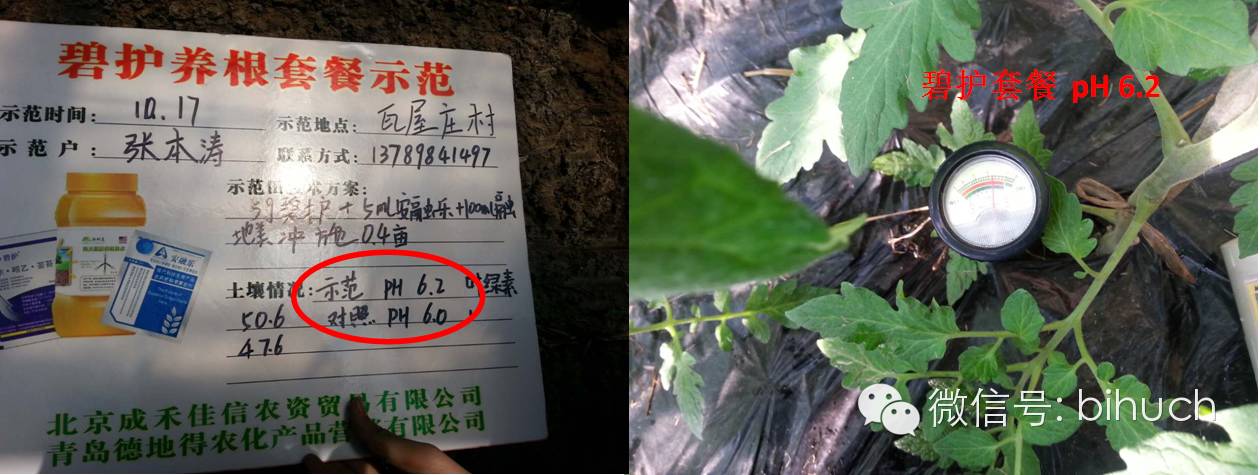 碧护养根套餐示范
示范时间: 10.17
示范地点: 瓦屋庄村
示范户: 张本涛
联系方式: 13789841497
示范田技术方案:
5g碧护+5mL安融乐+100mL
地美冲施0.4亩
土壤情况: 示范 PH 6.2 叶绿素
50.6 对照 PH 6.0
47.6
北京成禾佳信农资贸易有限公司
青岛德地得农化产品营销有限公司
碧护套餐 pH 6.2
微信号: bihuch